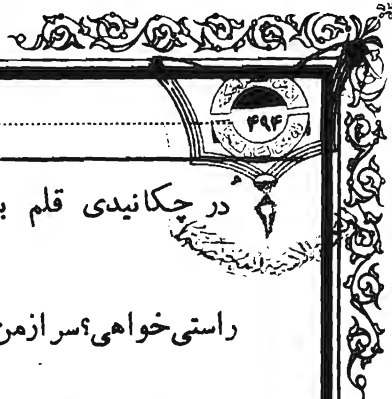 ۴۹۴
دُر چکانیدی قلم
راستی خواهی؟سر ازمن